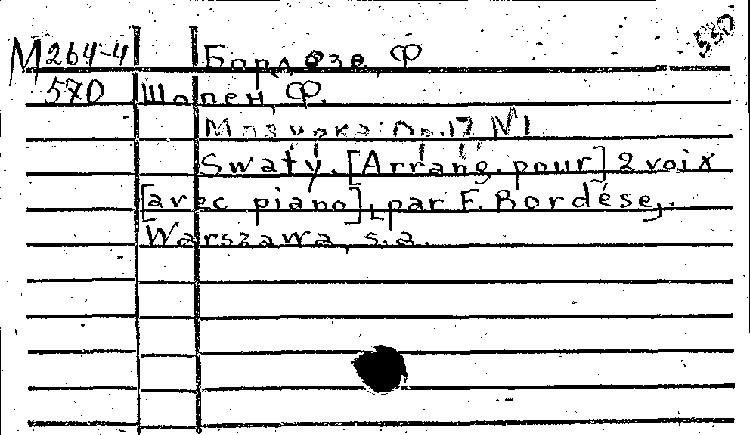 550
M264-4 Бордезе, Ф
570 Шопен, Ф.
Мазурка: Op. 17 N1
"Swaty". [Arrang. pour] 2 voix
[avec piano], par F. Bordése,.
Warszawa, s.a.